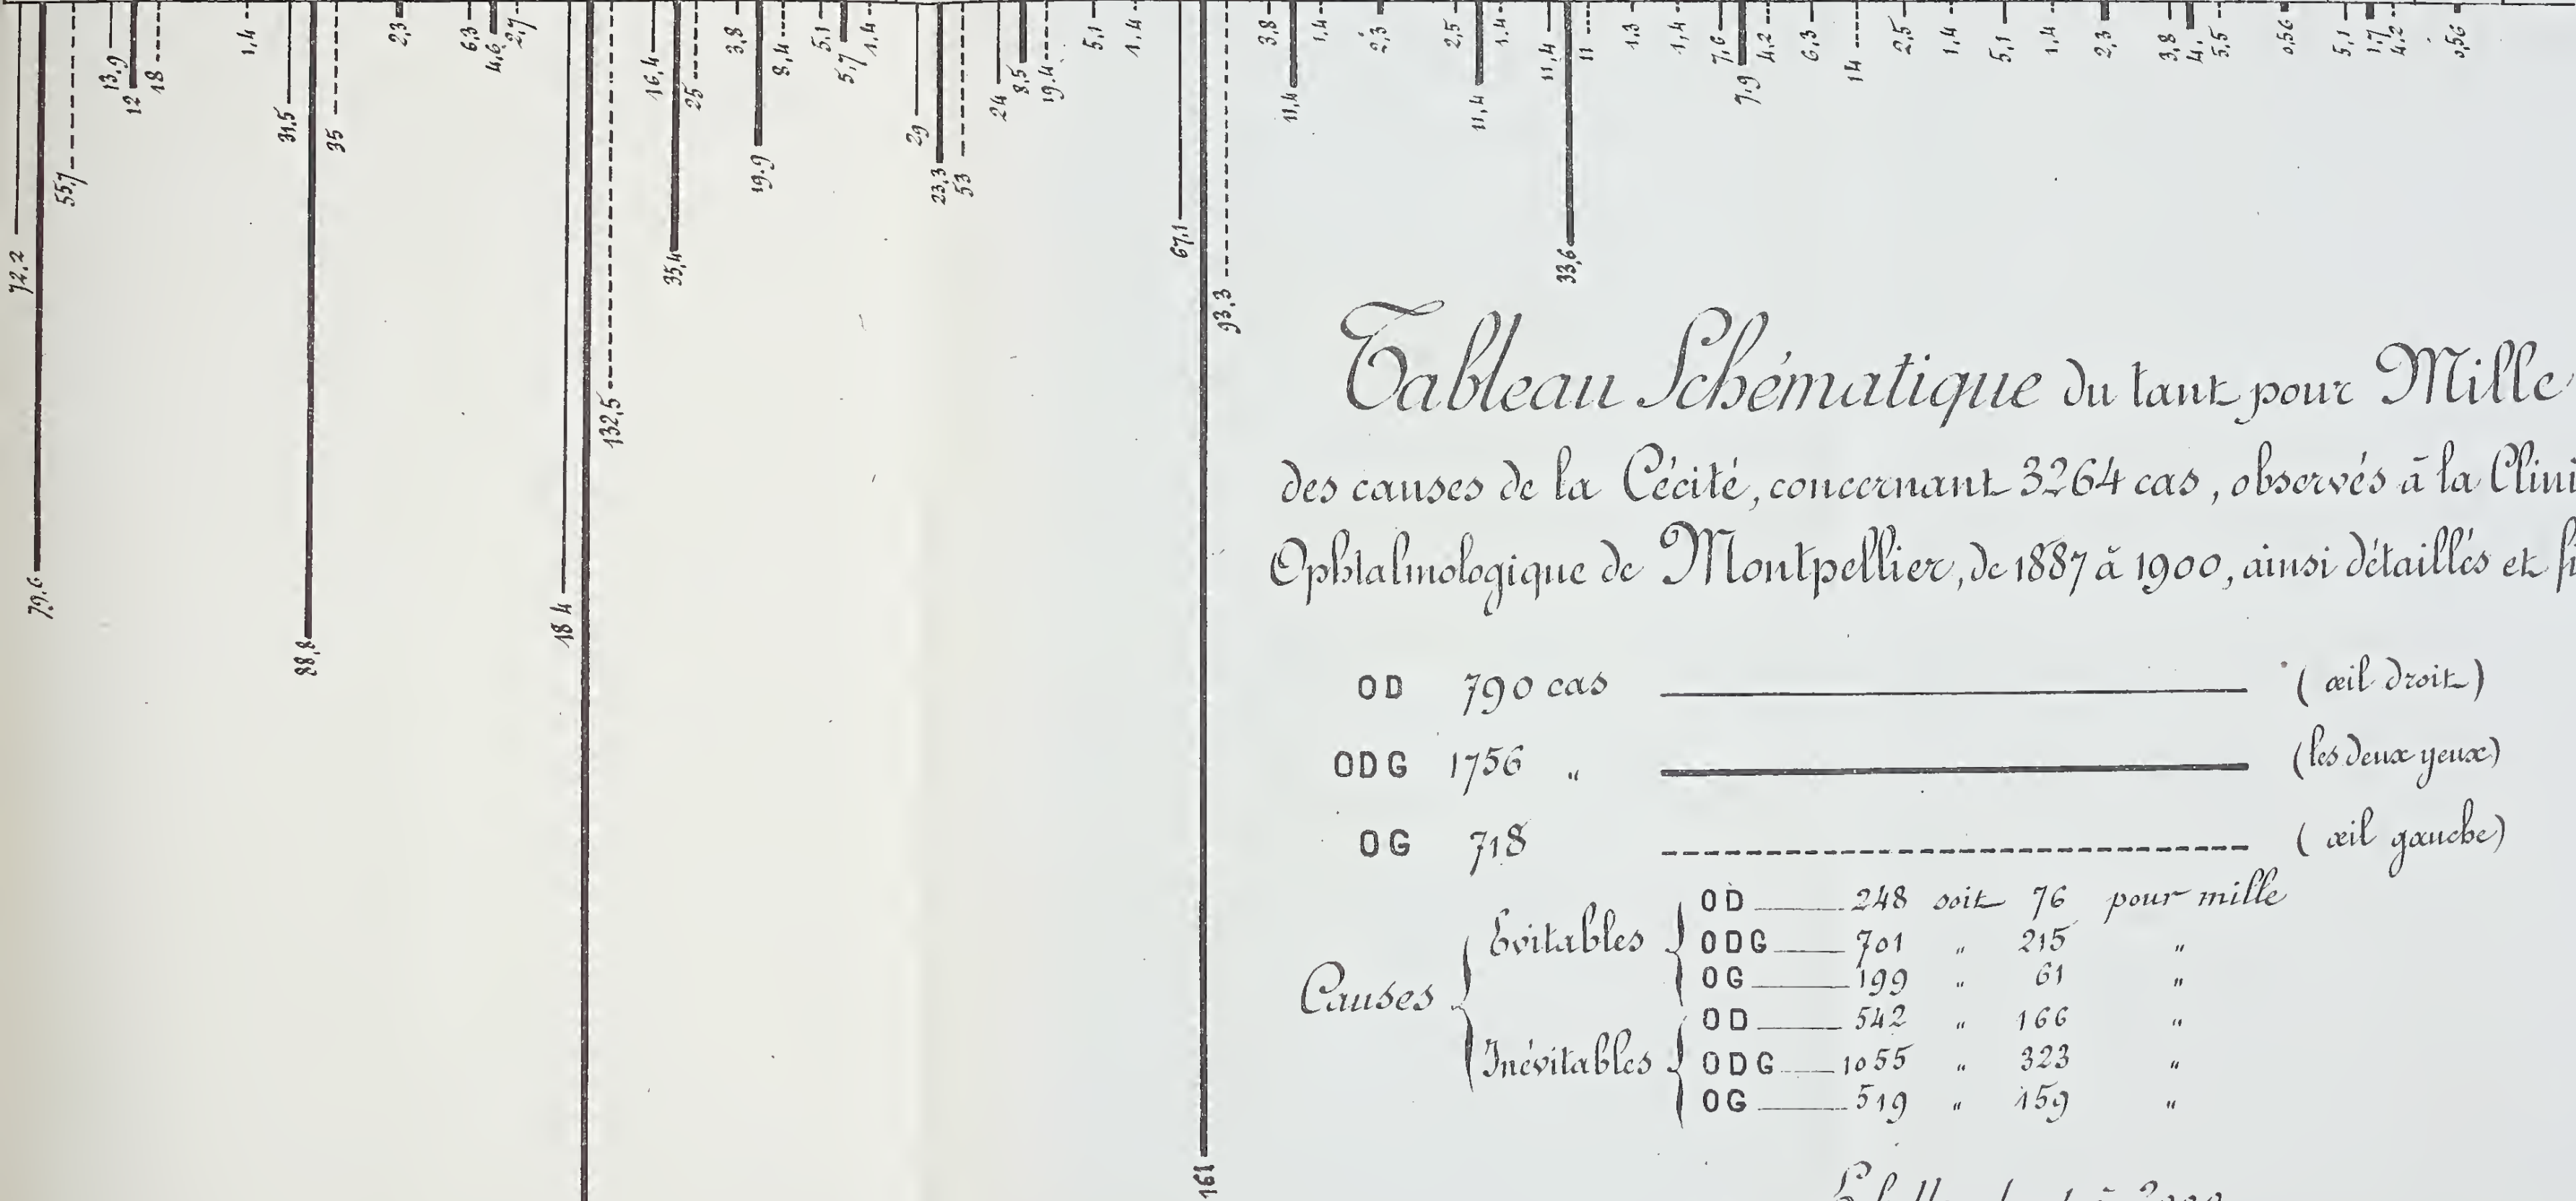 72,2
79.6
55,7
13,9
12
18
1,4
31,5
88,8
35
2,3
6,3
4,6
2,7
18 4
132,5
16,4
35,4
25
3,8
19.9
8,4
5,1
5,7
1,4
29
23,3
53
24
8,5
19.4
5,1
1,4
67,1
161
93,3
3,8
11,4
1,4
2,3
2,5
11,4
1.4
11,4
33,6
11
1,3
1,4
7,6
7.9
4,2
6,3
14
2,5
1,4
5,1
1,4
2,3
3,8
4,
5,5
0,56
5,1
1,7
4,2
0,56
Tableau Schématique du tant pour Mille
des causes de la Cécité, concernant 3264 cas, observés à la Clini
Ophtalmologique de Montpellier, de 1887 à 1900, ainsi détaillés et
OD 790 cas (œil droit)
ODG 1756 „ (les deux yeux)
OG 718 (œil gauche)
Causes
Evitables
OD 248 soit 76 pour mille
ODG 701 „ 215 „
OG 199 „ 61 „
Inévitables
OD 542 „ 166 „
ODG 1055 „ 323 „
OG 519 „ 159 „